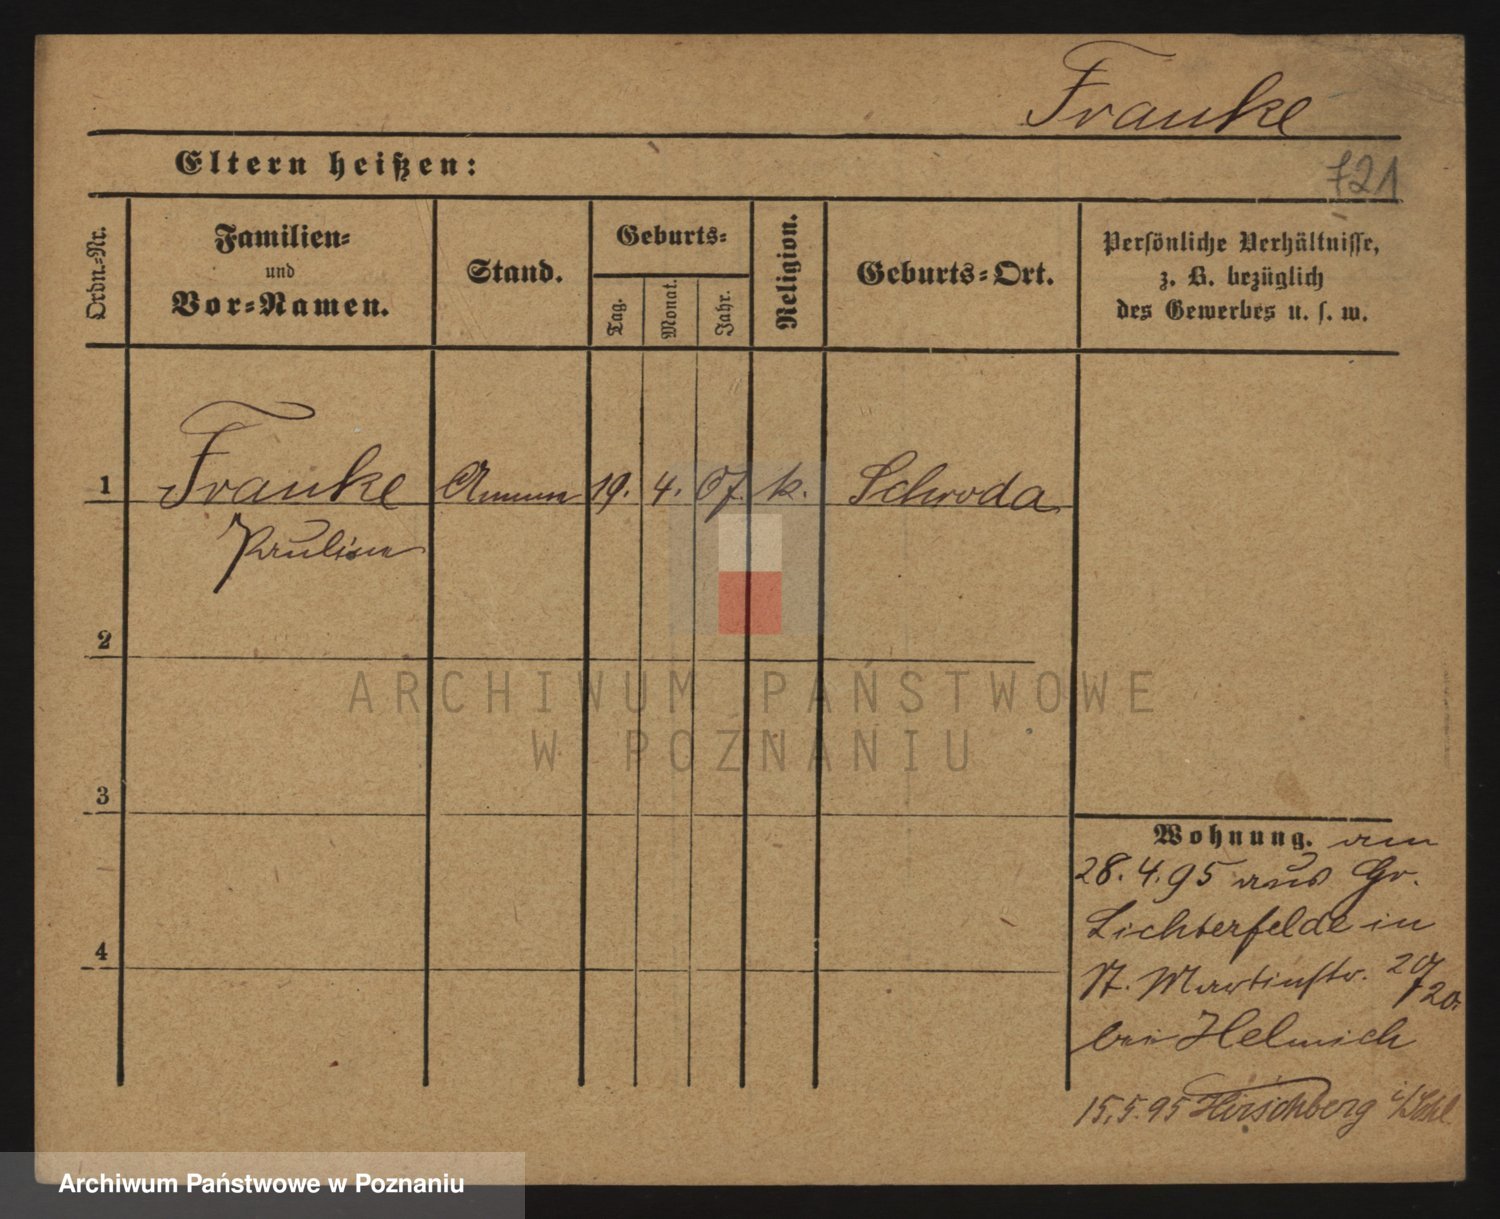 Franke
Eltern heißen:
721
Ordn.-Nr.
Familien-
und
Vor-Namen.
Stand.
Geburts-
Tag.
Monat.
Jahr.
Religion.
Geburts-Ort.
Persönliche Verhältnisse,
z. B. bezüglich
des Gewerbes u. s. w.
1
Franke
Amme
19. 4. 67. k.
Schroda
Pauline
2
ARCHIWUM PAŃSTWOWE
W POZNANIU
3
Wohnung. am
28. 4. 95 aus Gr.
Lichterfelde in
St. Martinstr.
4
bei Helmich
15. 5. 95 Hirschberg i/Schl.
Archiwum Państwowe w Poznaniu